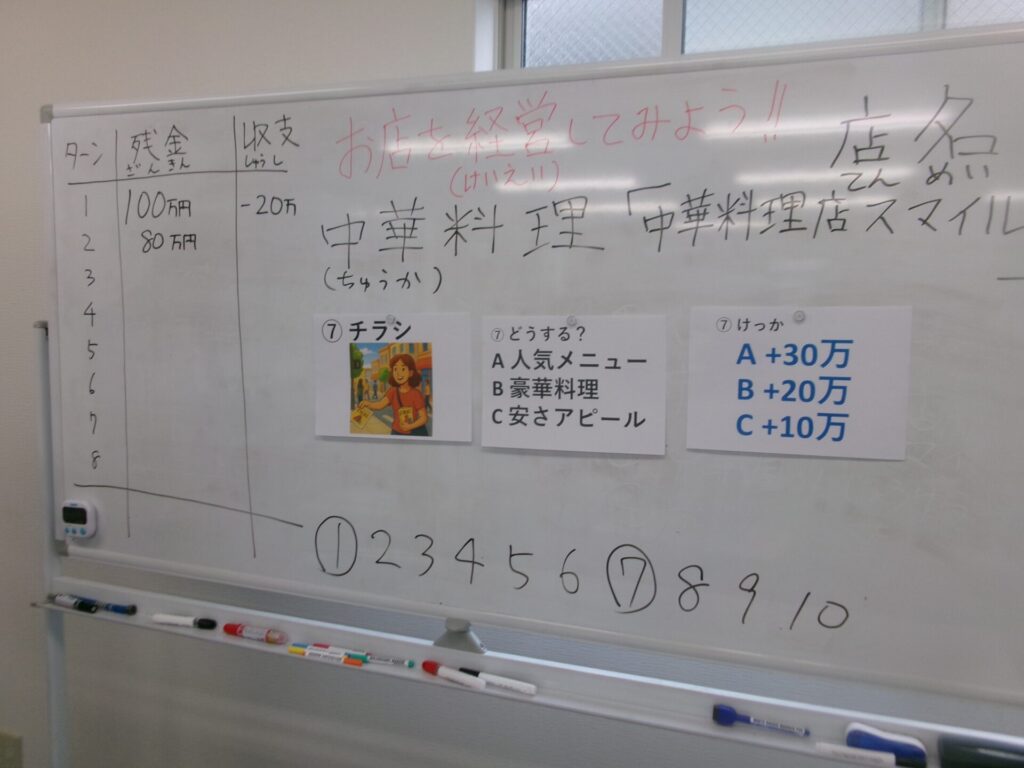 お店を経営してみよう!!
(けいえい)
店名
てんめい
中華料理「中華料理店スマイル
(ちゅうか)
ターン 残金 収支
ざんきん しゅうし
1 100万円 -20万
2 80万円
3
4
5
6
7
8
⑦ チラシ
⑦ どうする?
A 人気メニュー
B 豪華料理
C 安さアピール
⑦ けっか
A +30万
B +20万
C +10万
① 2 3 4 5 6 ⑦ 8 9 10